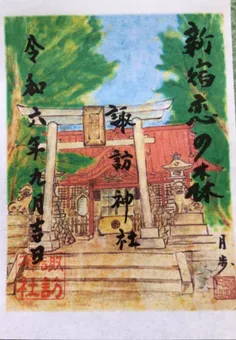 新宿恋の森
諏訪神社
令和六年九月吉日
月歩
諏訪
社